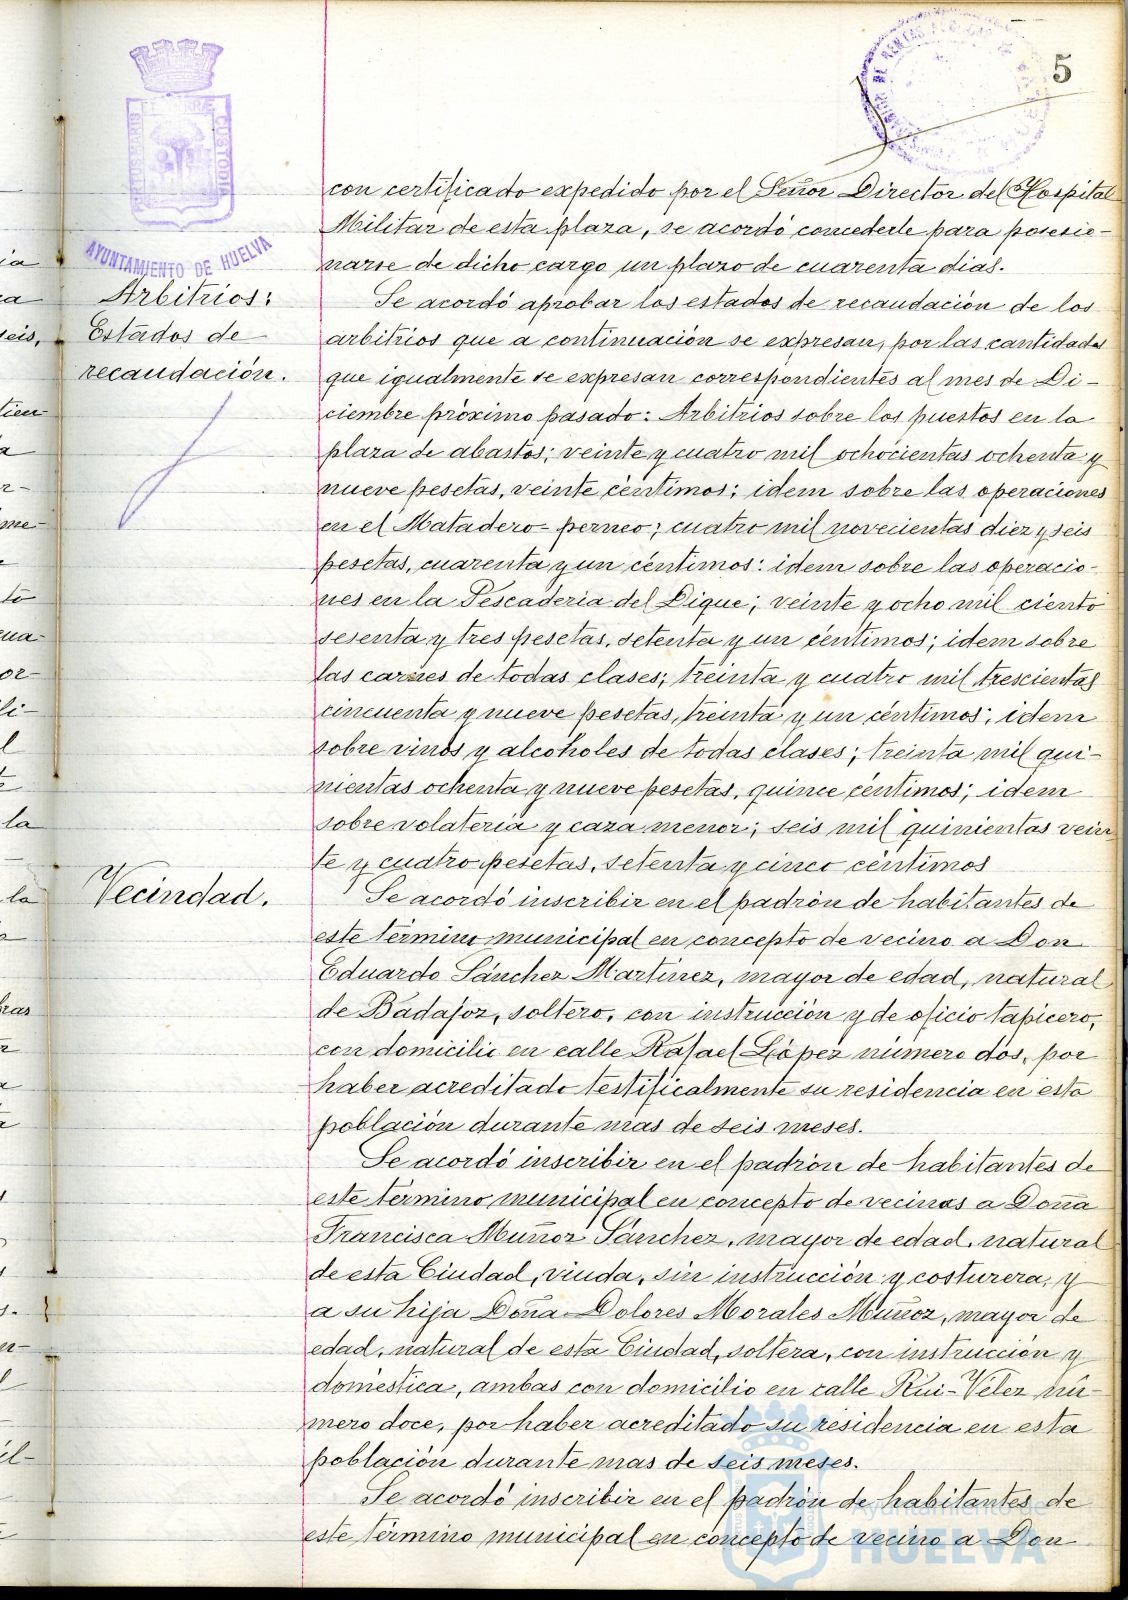 5
AYUNTAMIENTO DE HUELVA
con certificado expedido por el Señor Director del Hospital
Militar de esta plaza, se acordó concederle para posesio-
narse de dicho cargo un plazo de cuarenta dias.
Arbitrios:
Estados de
recaudación.
Se acordó aprobar los estados de recaudación de los
arbitrios que a continuación se expresan, por las cantidades
que igualmente se expresan correspondientes al mes de Di-
ciembre próximo pasado: Arbitrios sobre los puestos en la
plaza de abastos; veinte y cuatro mil ochocientas ochenta y
nueve pesetas, veinte céntimos; idem sobre las operaciones
en el Matadero-perneo; cuatro mil novecientas diez y seis
pesetas, cuarenta y un céntimos: idem sobre las operacio-
nes en la Pescaderia del Dique; veinte y ocho mil ciento
sesenta y tres pesetas, setenta y un céntimos; idem sobre
las carnes de todas clases; treinta y cuatro mil trescientas
cincuenta y nueve pesetas, treinta y un céntimos; idem
sobre vinos y alcoholes de todas clases; treinta mil qui-
nientas ochenta y nueve pesetas, quince céntimos; idem
sobre volateria y caza menor; seis mil quinientas vein
te y cuatro pesetas, setenta y cinco céntimos
Vecindad.
Se acordó inscribir en el padrón de habitantes de
este término municipal en concepto de vecino a Don
Eduardo Sánchez Martínez, mayor de edad, natural
de Badajoz, soltero, con instrucción y de oficio tapicero,
con domicilio en calle Rafael López número dos, por
haber acreditado testificalmente su residencia en esta
población durante mas de seis meses.
Se acordó inscribir en el padrón de habitantes de
este término municipal en concepto de vecinas a Doña
Francisca Muñoz Sánchez, mayor de edad, natural
de esta Ciudad, viuda, sin instrucción y costurera, y
a su hija Doña Dolores Morales Muñoz, mayor de
edad, natural de esta Ciudad, soltera, con instrucción y
doméstica, ambas con domicilio en calle Rui-Velez nú-
mero doce, por haber acreditado su residencia en esta
población durante mas de seis meses.
Se acordó inscribir en el padrón de habitantes de
este término municipal en concepto de vecino a Don
Ayuntamiento de
HUELVA